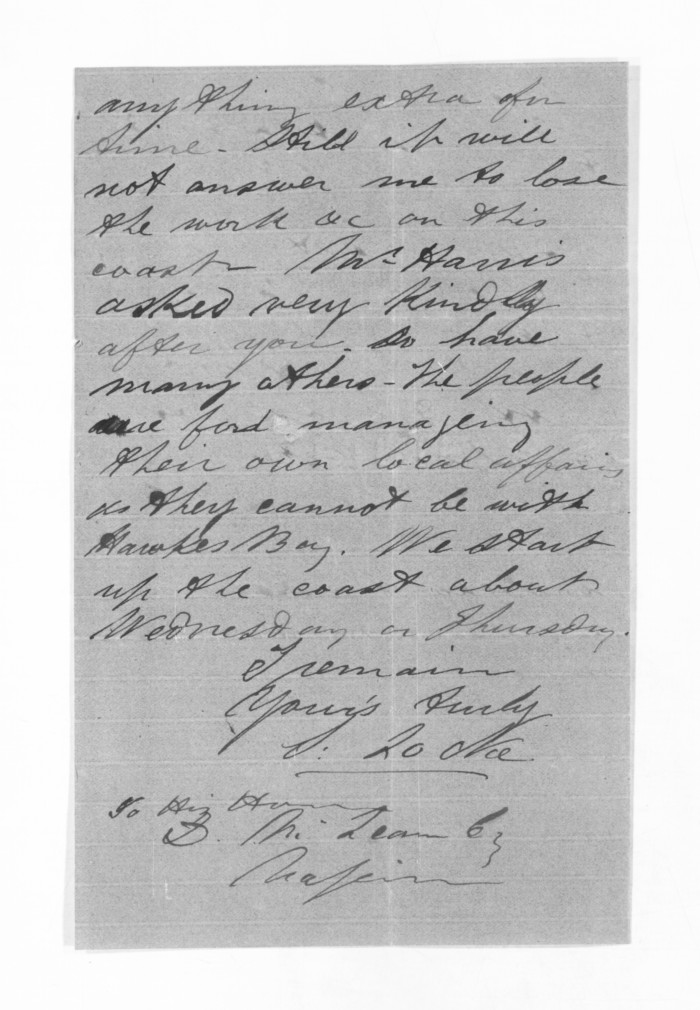 anything extra for
time - Still it will
not answer me to lose
the work &c on this
coast Mr Harris
asked very kindly
after you - so have
many others - The people
are managing
their own local affairs
as they cannot be with
Hawkes Bay. We start
up the coast about
Wednesday or Thursday.
I remain
Your's truly
S. Locke
To His Honor
D. McLean Esq
Napier